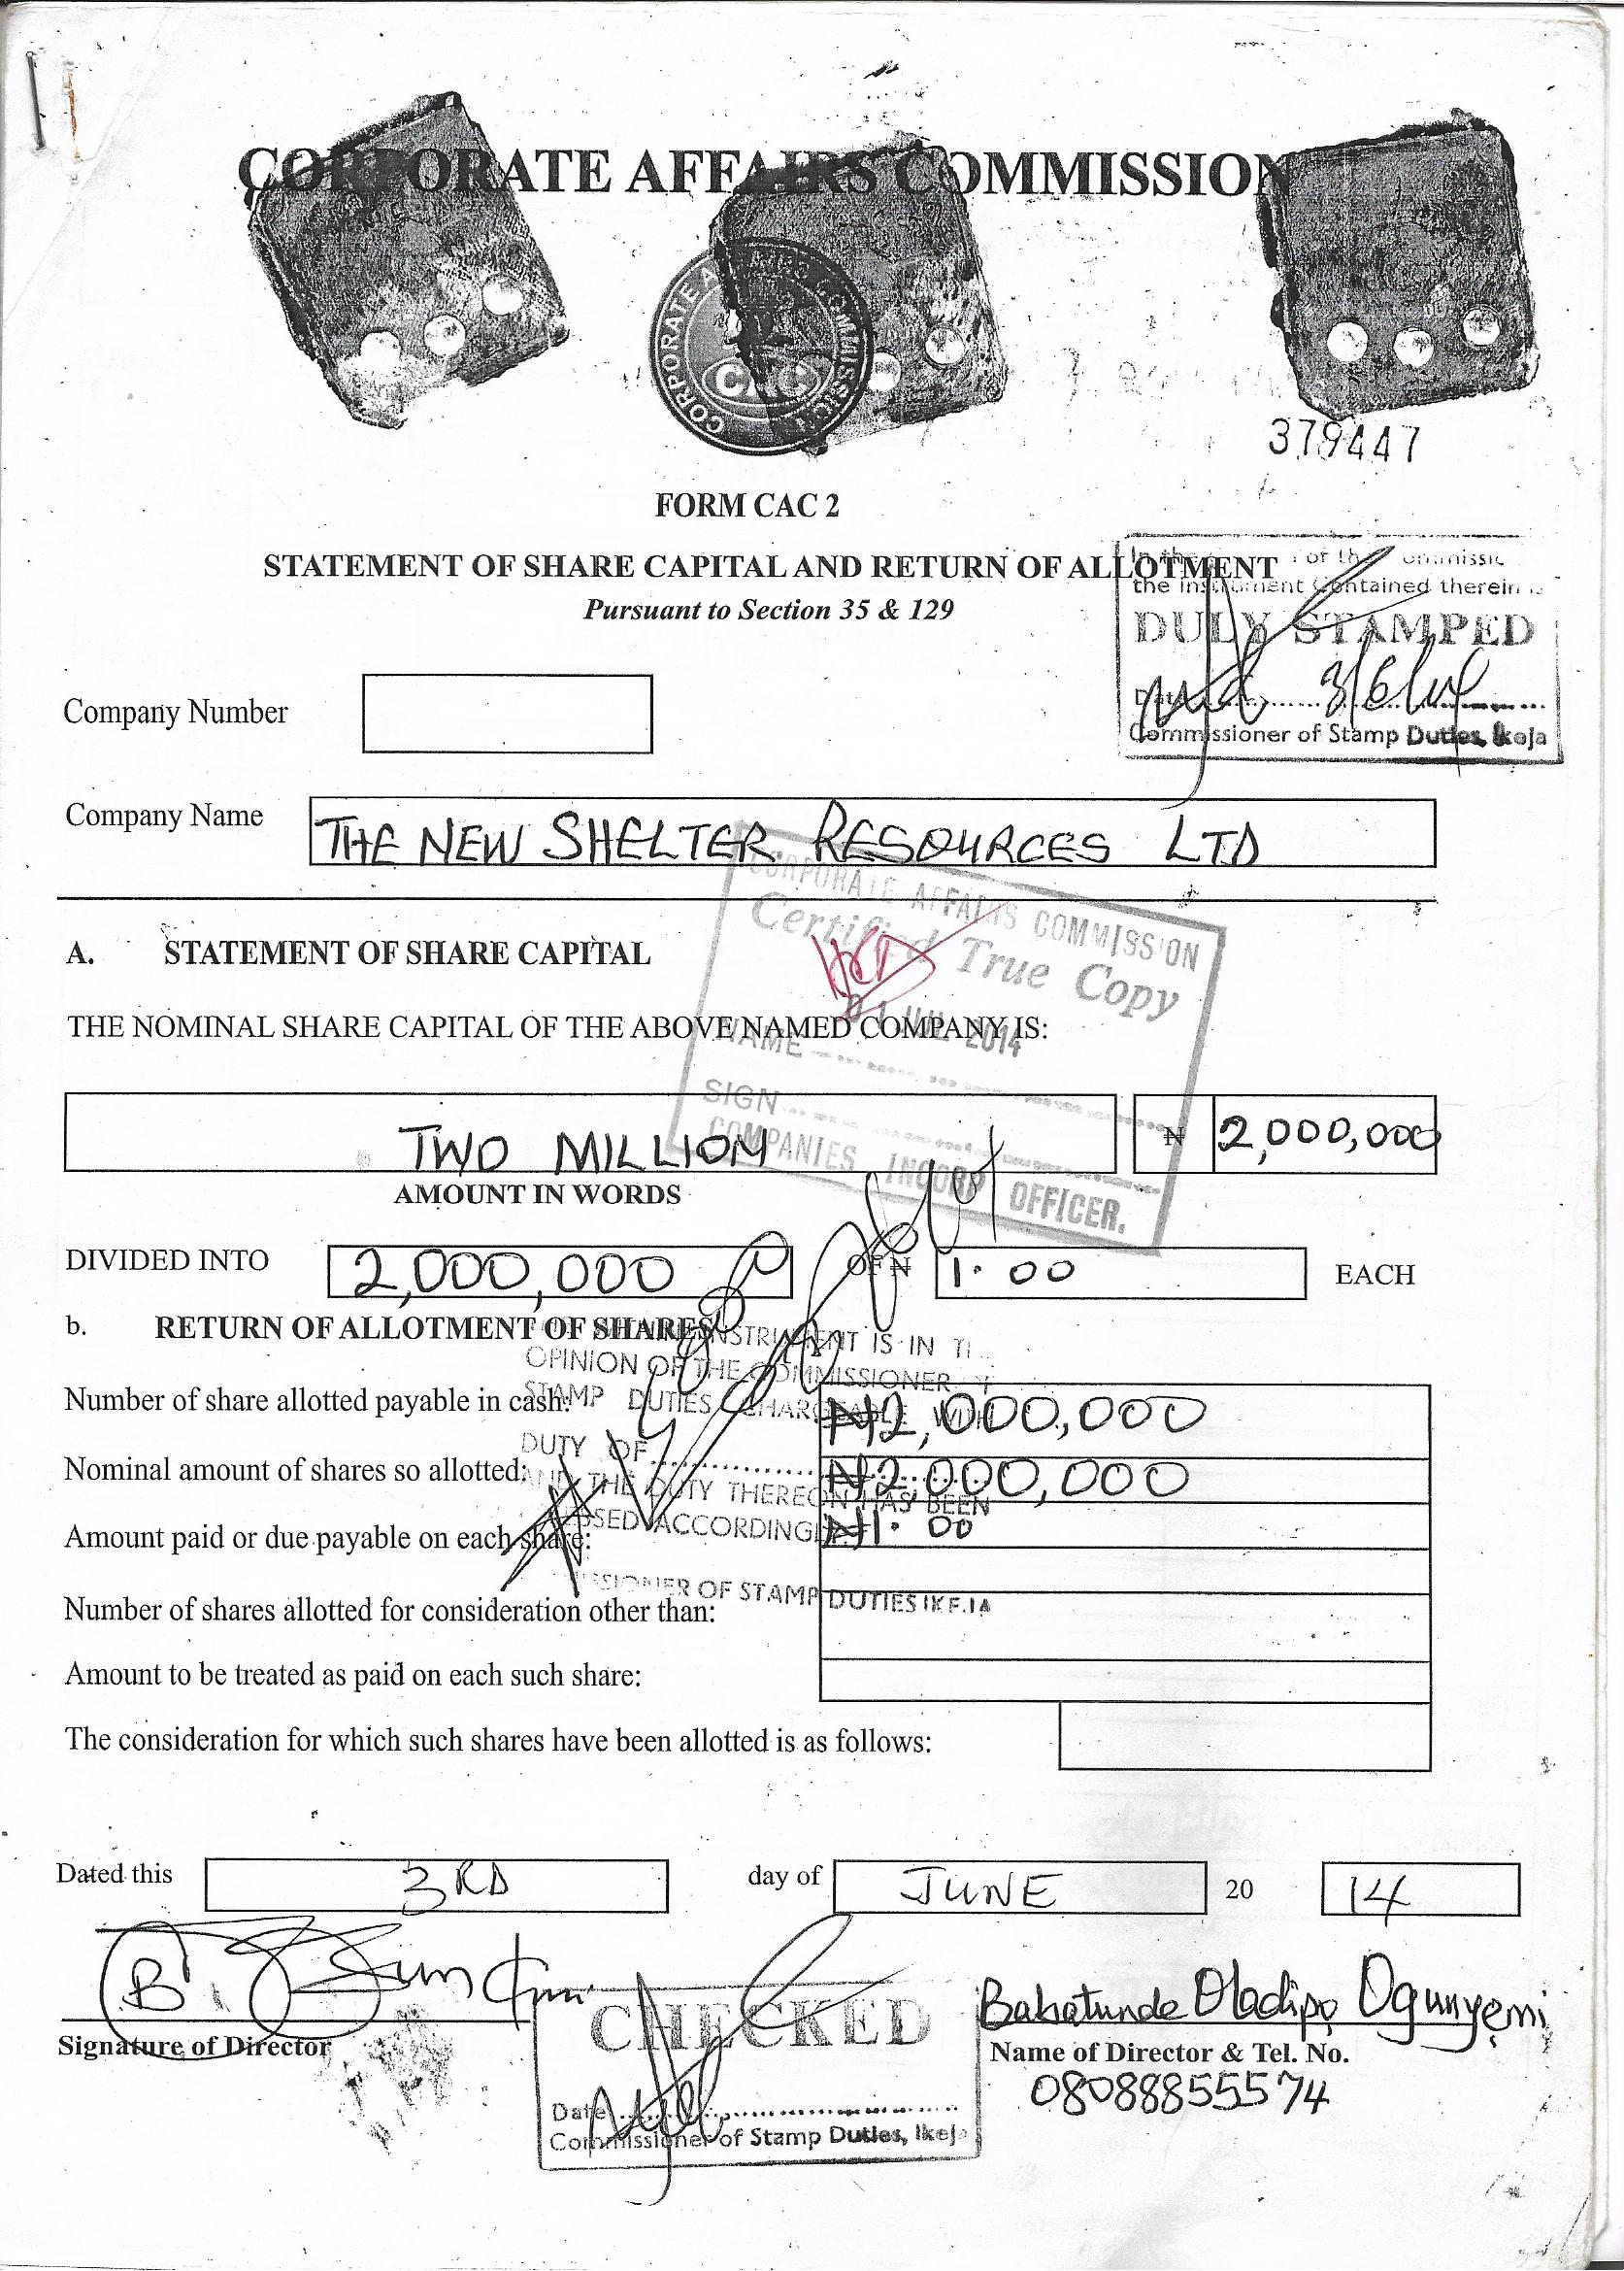 CORPORATE AFFAIRS COMMISSION
CORPORATE AFFAIRS COMMISSION
CAC
379447
FORM CAC 2
STATEMENT OF SHARE CAPITAL AND RETURN OF ALLOTMENT
Pursuant to Section 35 & 129
the Instrument Contained therein is
DULY STAMPED
Date 3/6/14
Commissioner of Stamp Duties, Ikeja
Company Number
Company Name THE NEW SHELTER RESOURCES LTD
CORPORATE AFFAIRS COMMISSION
Certified True Copy
01 JUL 2014
NAME
SIGN
COMPANIES INCORP OFFICER.
A. STATEMENT OF SHARE CAPITAL
THE NOMINAL SHARE CAPITAL OF THE ABOVE NAMED COMPANY IS:
TWO MILLION ₦ 2,000,000
AMOUNT IN WORDS
DIVIDED INTO 2,000,000 OF ₦ 1.00 EACH
b. RETURN OF ALLOTMENT OF SHARES
INSTRUMENT IS IN
OPINION OF THE COMMISSIONER OF
STAMP DUTIES CHARGEABLE WITH
DUTY OF
AND THE DUTY THEREON HAS BEEN
ACCORDINGLY
OF STAMP DUTIES IKEJA
Number of share allotted payable in cash: ₦2,000,000
Nominal amount of shares so allotted: ₦2,000,000
Amount paid or due payable on each share: ₦1.00
Number of shares allotted for consideration other than:
Amount to be treated as paid on each such share:
The consideration for which such shares have been allotted is as follows:
Dated this 3RD day of JUNE 20 14
Signature of Director
CHECKED
Date
Commissioner of Stamp Duties, Ikeja
Babatunde Oladipo Ogunyemi
Name of Director & Tel. No.
08088855574